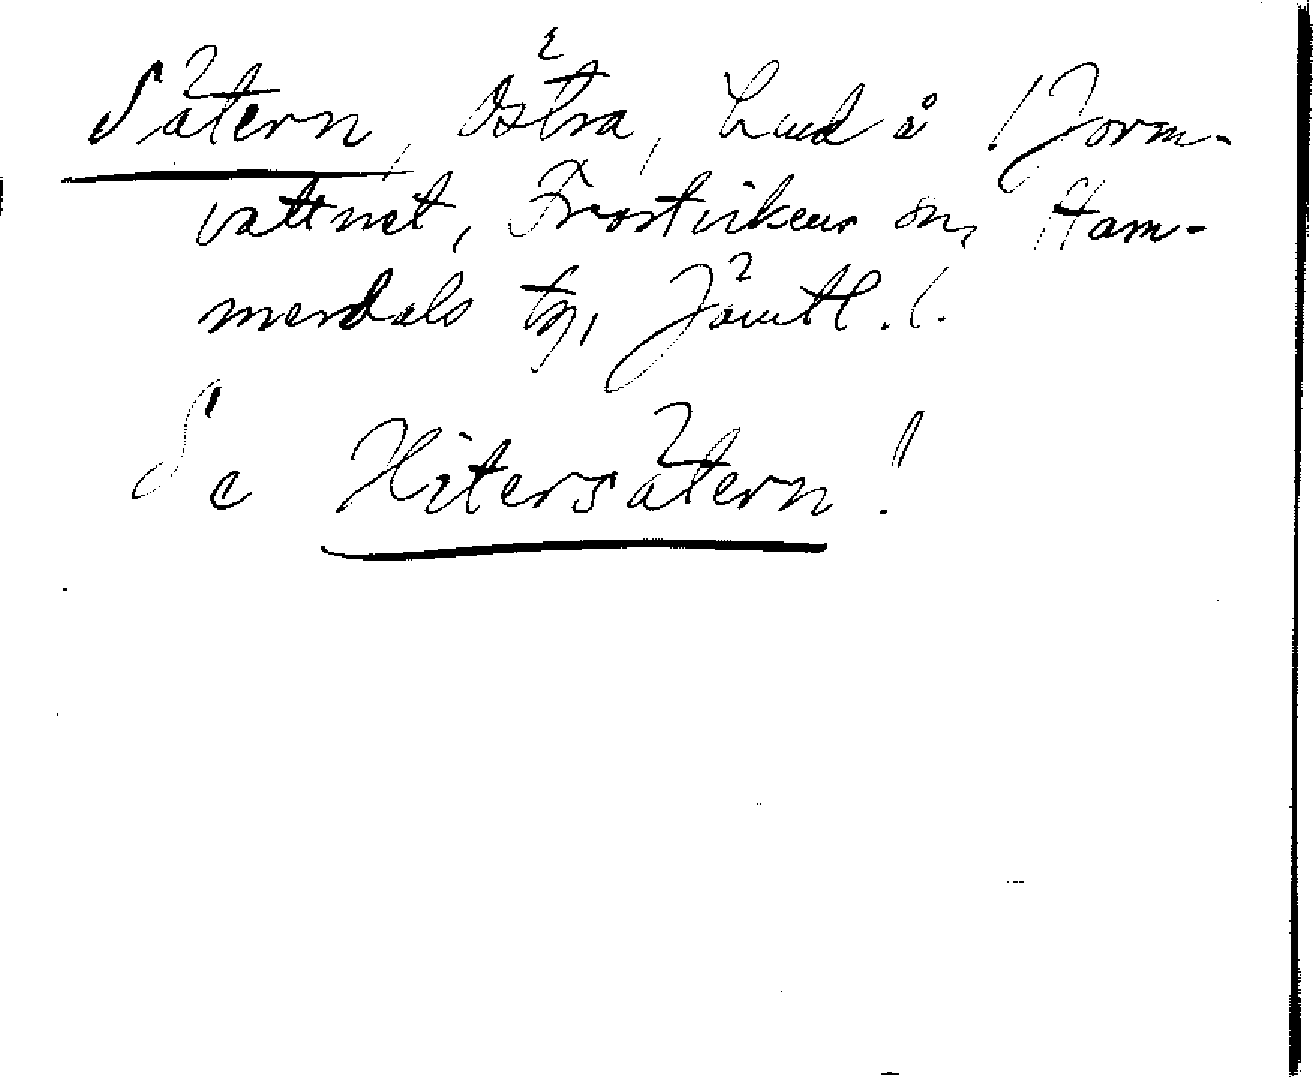 Sätern, Östra, å Jorm-
vattnet, Frostvikens sn, Ham-
merdals tg, Jämtl. l.
Se Hitersätern!